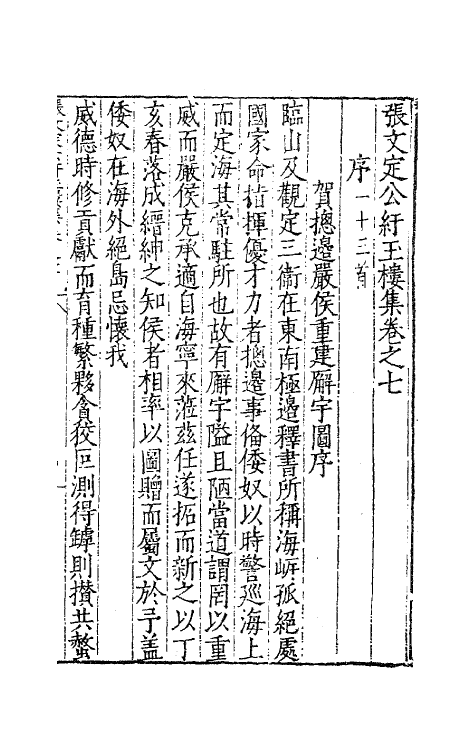 張文定公紆玉樓集卷之七
序一十三首
賀摠邊嚴侯重建廨宇圖序
臨山及觀定三衞在東南極邊釋書所稱海㟁孤絕處
國家命指揮優才力者摠邊事俻倭奴以時警廵海上
而定海其常駐所也故有廨宇隘且陋當道謂罔以重
威而嚴侯克承適自海寧來蒞茲任遂拓而新之以丁
亥春落成縉紳之知侯者相率以圖贈而屬文於予盖
倭奴在海外絕島忌懷我
威德時修貢獻而育種繁夥貪狡叵測得罅則攅共螫